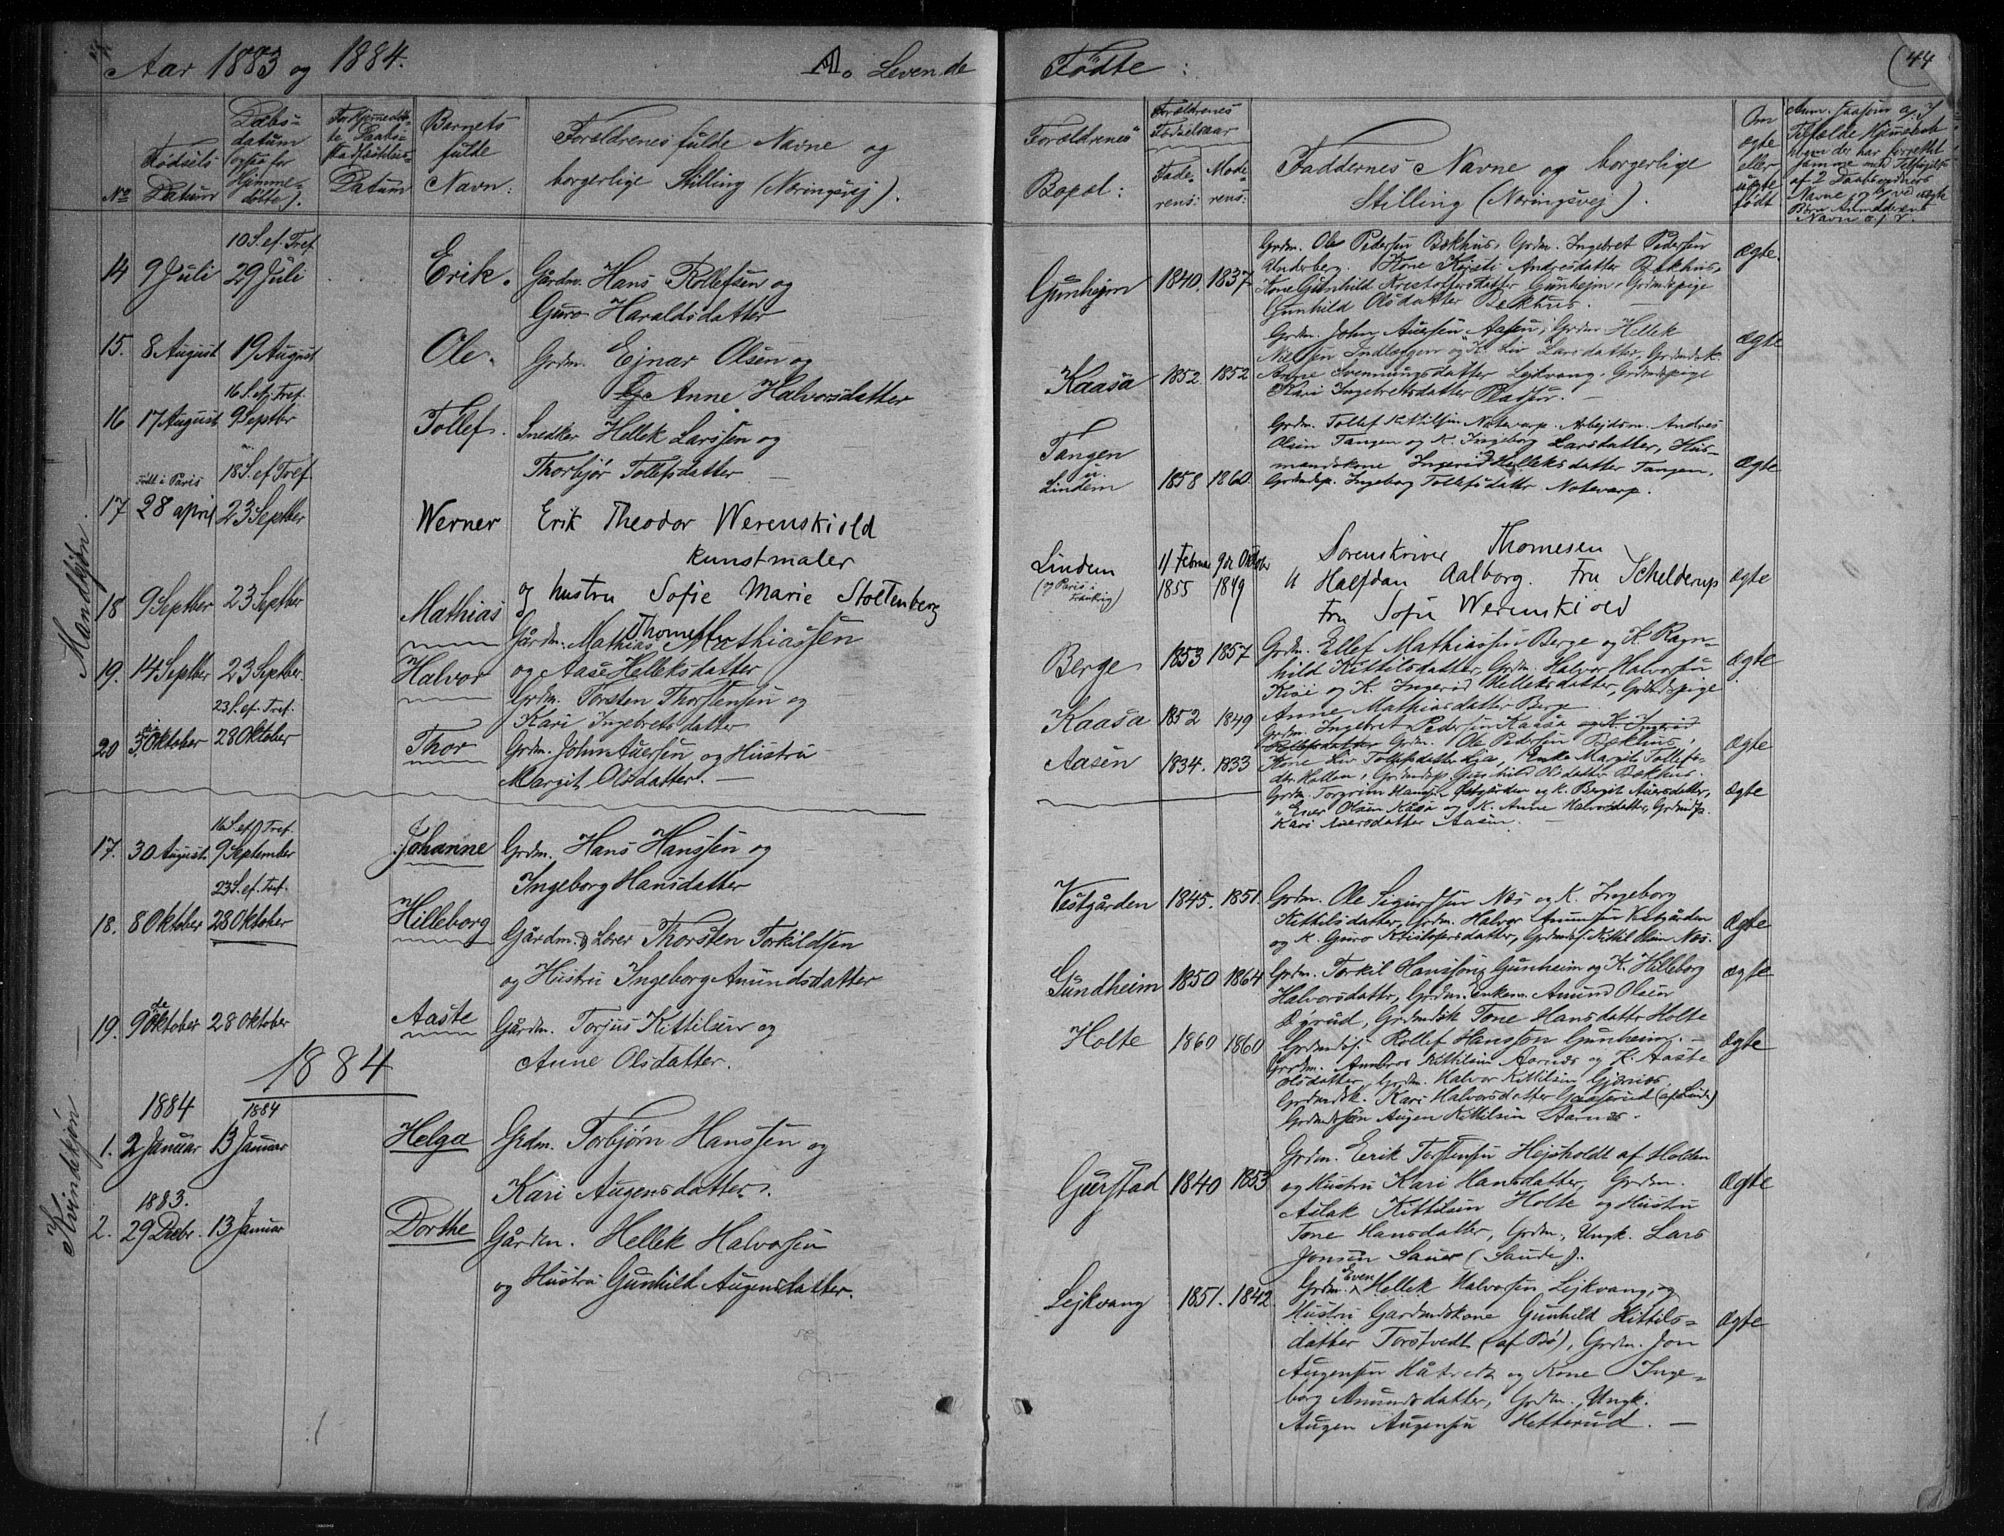 Aar 1883 og 1884.
A. Levende
Fødte:
44
No
Fødsels
Datum
Daabs-
datum
(ogsaa for
Hjemme-
døbte).
Datum
Barnets
fulde
Navn:
Forældrenes fulde Navne og
borgerlige Stilling (Næringsvej).
Forældrenes
Bopæl:
Forældrenes
Fødselsaar
Fade-
rens:
Mode-
rens:
Faddernes Navne og borgerlige
Stilling (Næringsvej).
Om
ægte
eller
uægte
født
Mandkjøn.
10 S. ef. Tref.
14 9 Juli 29 Juli Erik. Gårdm. Hans Rollefsen og
Guro Haraldsdatter
Gunheim 1840. 1837
Grdm. Ole Pedersen Bækhus, Grdm. Ingebret Pedersen
Kone Kirsti Andresdatter Bækhus,
Kone Gunhild Kristoffersdatter Gunheim, Grdmdspige
Gunhild Olsdatter Bækhus.
ægte.
15. 8 August 19 August Ole. Grdm. Ejnar Olsen og
Anne Halvorsdatter
Kaasa 1852. 1852
Grdm. John Auersen Aasen, Grdm. Hellek
Nielsen K. Liv Larsdatter, Grdmdsk.
Anne Svennungsdatter Lejkvang, Grdmdspige
Kari Ingebretsdatter
ægte
16 S. ef. Tref.
16 17 August 9 Septbr Tollef. Snedker Hellek Larssen og
Thorbjør Tollefsdatter
Tangen
u.
Lindem
1858 1860.
Grdm. Tollef Kittilsen Notevarp. Arbejdsm. Andres
Olsen Tangen og K. Ingeborg Larsdatter, Hus-
mandskone Ingerid Helleksdatter Tangen,
Grdmdsp. Ingeborg Tollefsdattr. Notevarp.
ægte
Født i Paris 18 S. ef. Tref.
17 28 april 23 Septber Werner Erik Theodor Werenskiold
kunstmaler
og hustru Sofie Marie Stoltenberg
Thomesen
Lindem
(og Paris i
Frankrig)
11 Februar 1855 9de Oktober 1849
Sorenskriver Thomesen
u Halfdan Aalborg. Fru Schelderup
Fru Sofie Werenskiold
ægte
18 9 Septber 23 Septber Mathias Gårdm. Mathias Mathiassen
og Aase Helleksdatter
Berge 1853 1857
Grdm. Ellef Mathiassen Berge og K. Ragn-
hild Kittilsdatter, Grdm. Halvor Halvorsen
og K. Ingerid Helleksdatter, Grdmdspige
Anne Mathiasdatter Berge
ægte
19. 14 Septber 23 Septber. Halvor Grdm. Torsten Thorstensen og
Kari Ingebretsdatter
Kaasa 1852 1849
Grdm. Ingebret Pedersen Kaasa
Grdm. Ole Pedersen Bækhus,
Kone Liv Tollefsdatter Lia, Enke Margit Tollefs-
dtr. Hallen, Grdmdsp. Gunhild Olsdatter Bækhus.
ægte
23 S. ef. Tref.
20 5 Oktober 28 Oktober Thor Grdm. John Auersen og Hustru
Margit Olsdatter.
Aasen 1834. 1833
Grdm. Torgrim Hansen Vestgården og K. Birgit Auersdatter,
Ener Olsen Kåsa og K. Anne Halvorsdatter, Grdmdsp.
Kari Auersdatter Aasen.
ægte
Kvindekjøn
16 S. ef. Tref.
17. 30 August. 9 September Johanne Grdm. Hans Hanssen og
Ingeborg Hansdatter
Vestgården 1845. 1851
Grdm. Ole Sigurdsen Næs og K. Ingeborg
Kittilsdatter, Grdm. Halvor Amundsen Vestgården
og K. Guro Kristofersdatter, Grdmdsf. Kittil Olsen Næs.
ægte
23 S. ef. Tref.
18. 8 Oktober 28 Oktober Hilleborg Gårdm. & Lærer Thorsten Torkildsen
og Hustru Ingeborg Amundsdatter
Gundheim 1850 1864
Grdm. Torkil Hanssen Gunheim og K. Hilleborg
Halvorsdattr., Grdm. Enkem. Amund Olsen
Dyrud, Grdmdsk. Tone Hansdattr. Holte
Grdmdsf. Rollef Hansson Gunheim.
ægte
19. 9de Oktober 28 Oktober Aaste Gårdm. Torjus Kittilsen og
Anne Olsdatter.
Holte 1860 1860
Grdm. Ambros Kittilsen Aarnes og K. Aaste
Olsdatter, Grdm. Halvor Kittilsen
Grdmdsk. Kari Halvorsdatter Gaaserud (af Lunde)
Grdmdssøn Augen Kittilsen Aarnes.
ægte
1884
1884 1884
1. 2 Januar 13 Januar Helga Grdm. Torbjørn Hanssen og
Kari Augensdatter.
Gurstad 1840 1853
Grdm. Erik Torstensen Hejsholdt af Holden
og Hustru Kari Hansdatter, Grdm.
Aslak Kittilsen Holte og Hustru
Tone Hansdatter, Grdm., Ungk. Lars
Jonsen Sauer (Saude).
ægte
1883.
2. 29 Decbr. 13 Januar Dorthe Gårdm. Hellek Halvorsen
og Hustru Gunhild Augensdatter.
Lejkvang 1851. 1842.
Grdm. Even Hellek Halvorsen Lejkvang, og
Hustru Gardmdskone Gunhild Kittils-
datter Torstvedt (af Bø), Grdm. Jon
Augensen Håtvedt og Kone Inge-
borg Amundsdatter, Grdm., Ungk.
Augen Augensen Hetterud.
ægte